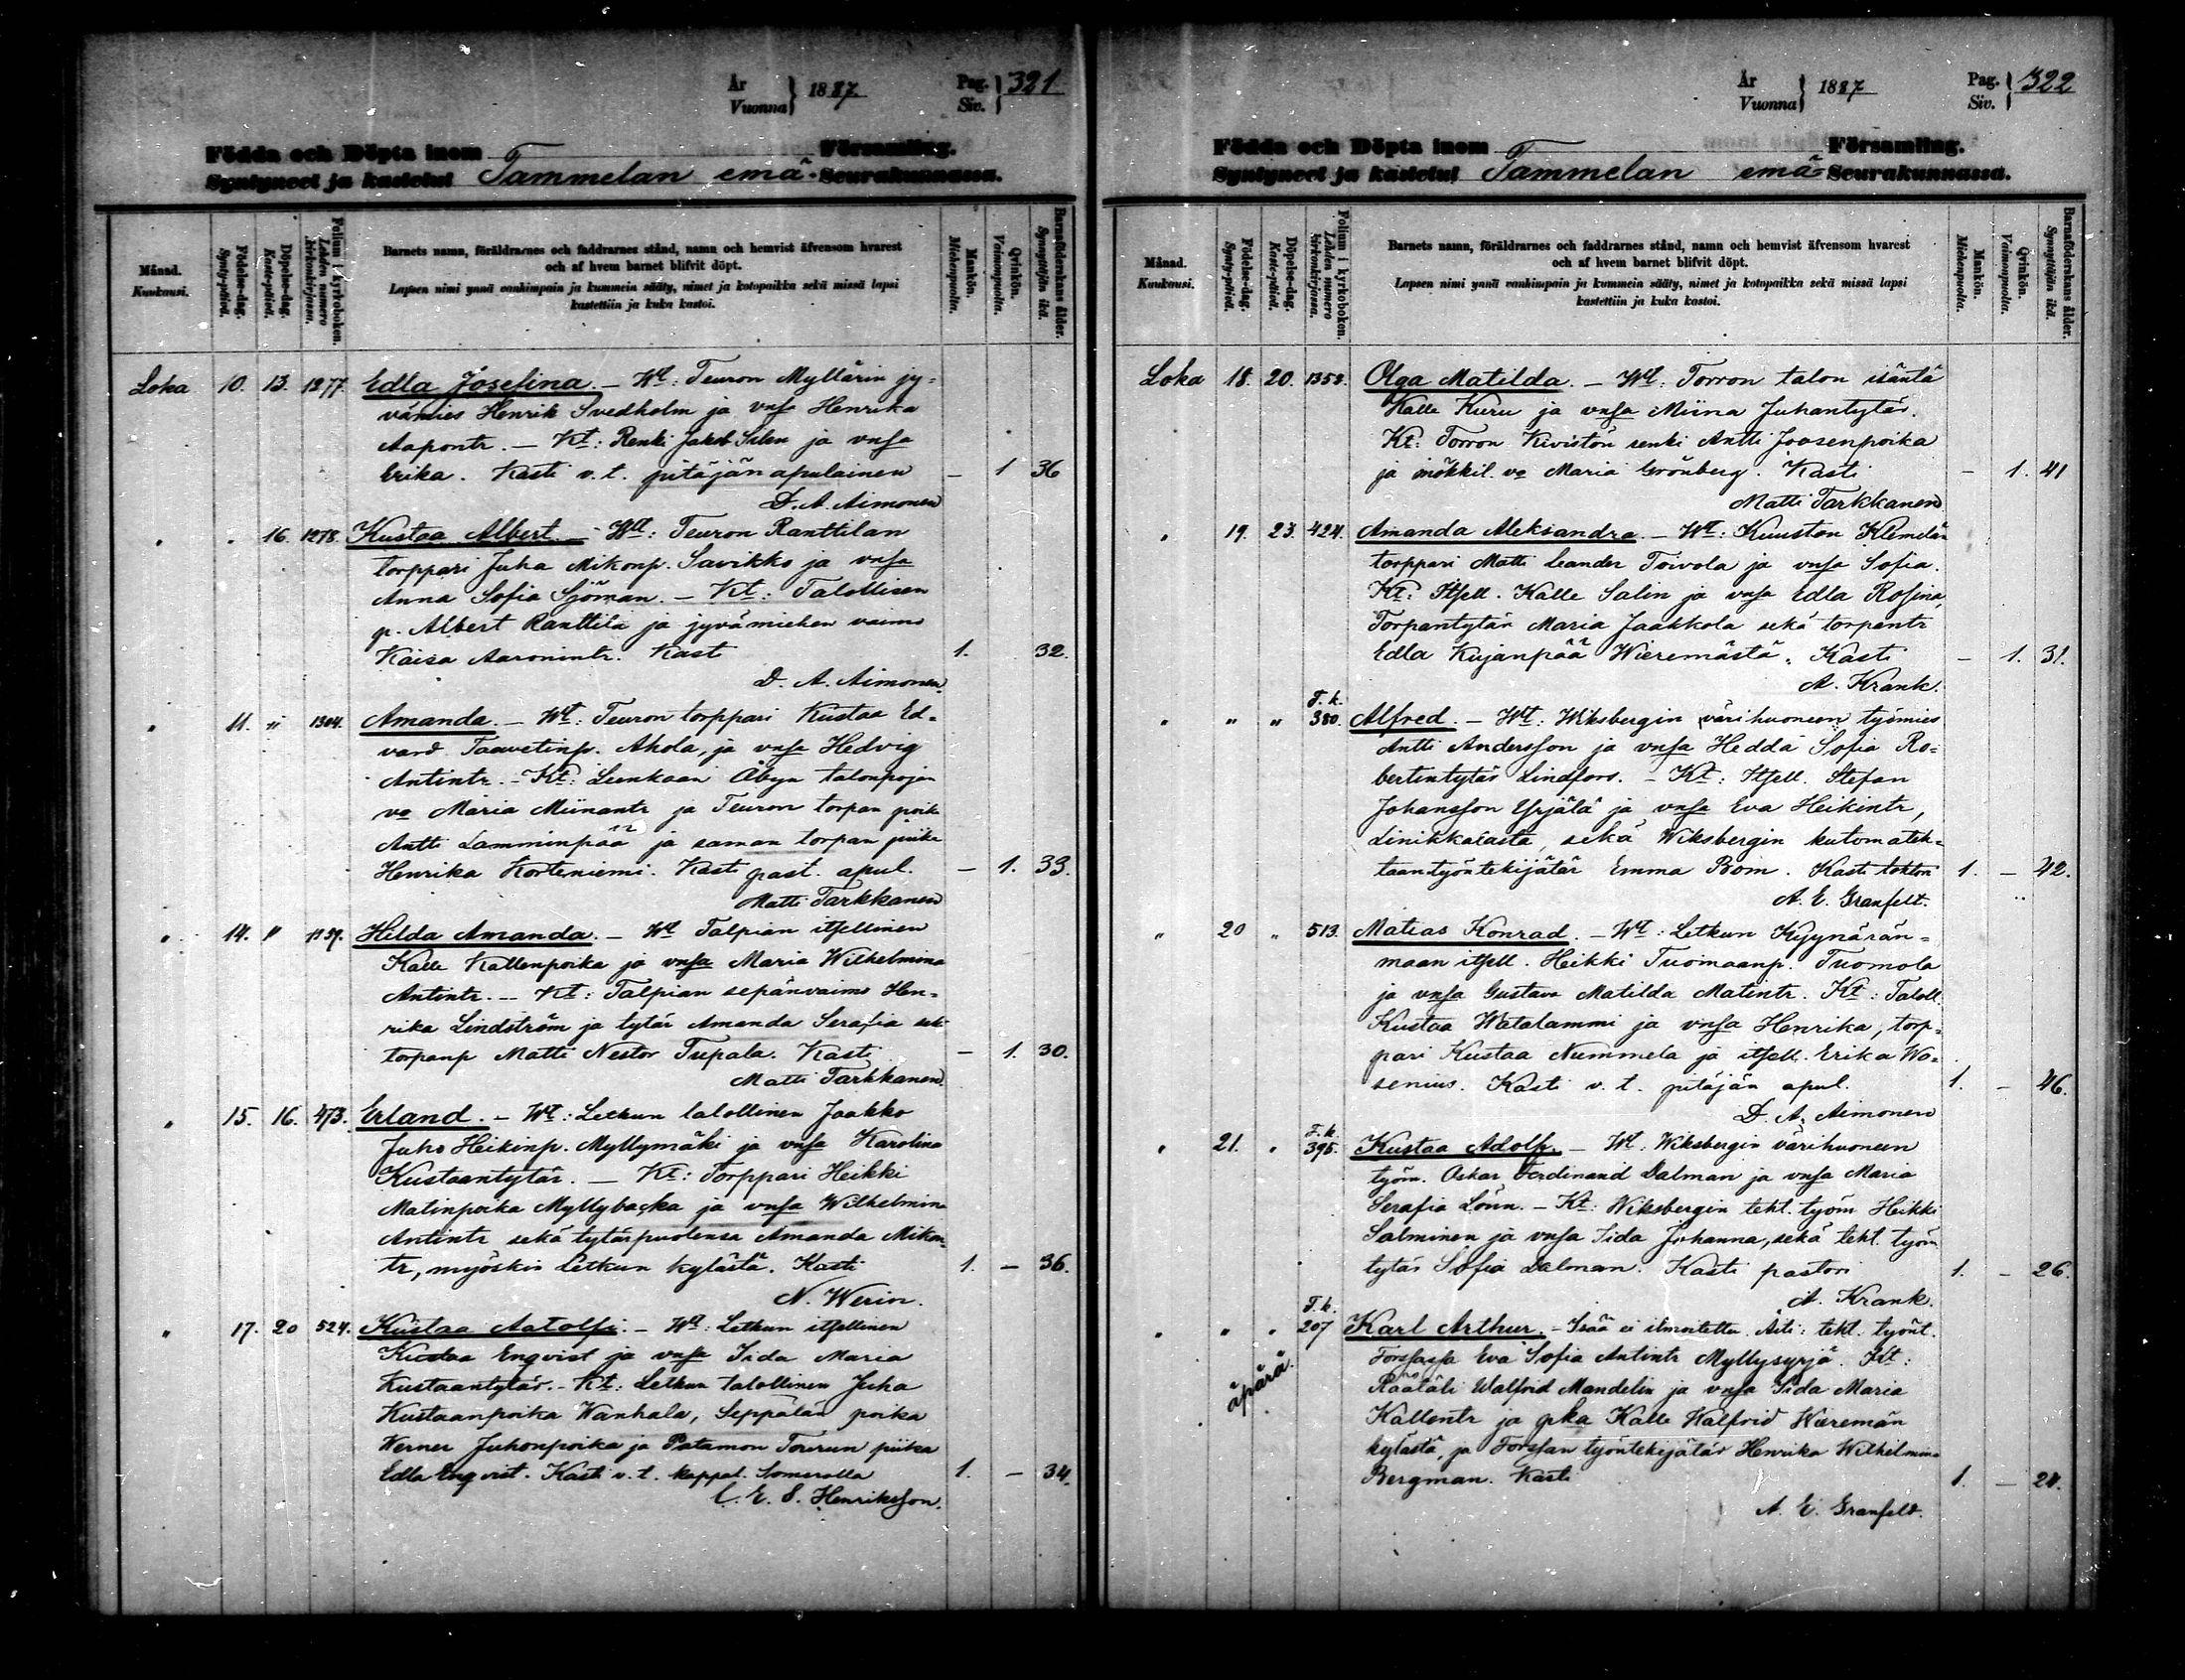 År
Vuonna } 1887.
Pag.
Siv. } 321
Födda och Döpta inom Församling.
Syntyneet ja kastetut Tammelan emä-Seurakunnassa.
Månad.
Kuukausi.
Födelse-dag.
Synty-päivä.
Döpelse-dag.
Kaste-päivä.
Folium i kyrkoboken.
Lehden numero kirkonkirjassa.
Barnets namn, föräldrarnes och faddrarnes stånd, namn och hemvist äfvensom hvarest
och af hvem barnet blifvit döpt.
Lapsen nimi ynnä vanhimpain ja kummein sääty, nimet ja kotopaikka sekä missä lapsi
kastettiin ja kuka kastoi.
Mankön.
Miehenpuolta.
Qvinkön.
Vaimonpuolta.
Barnaföderskans ålder.
Synnyttäjän ikä.
Loka 10. 13. 1277. Edla Josefina. — Wt: Teuron Myllärin jy=
vämies Henrik Svedholm ja vnsa Henrika
Aapontr. — Kt: Renki Jakob Silen ja vnsa
Erika. Kasti v.t. pitäjänapulainen — 1 36
D. A. Aimonen
" " 16. 1278. Kustaa Albert. — Wt: Teuron Ranttilan
torppari Juha Mikonp. Savikko ja vnsa
Anna Sofia Sjöman. — Kt: Talollisen
p. Albert Ranttila ja jyvämiehen vaimo
Kaisa Aaronintr. Kast 1. 32.
D. A. Aimonen.
" 11. " 1304. Amanda. — Wt: Teuron torppari Kustaa Ed=
vard Taavetinp. Ahola, ja vnsa Hedvig
Antintr. — Kt: Lunkaan Åbyn talonpojan
vo Maria Miinantr ja Teuron torpan poika
Antti Lamminpää ja saman torpan piika
Henrika Korteniemi. Kasti past. apul. — 1. 33.
Matti Tarkkanen
" 14. " 1139. Hilda Amanda. — Wt Talpian itsellinen
Kalle Kallenpoika ja vnsa Maria Wilhelmina
Antintr. — Kt: Talpian sepänvaimo Hen=
rika Lindström ja tytär Amanda Serafia sek
torpanp Matti Nestor Tupala. Kasti — 1. 30.
Matti Tarkkanen.
" 15. 16. 473. Erland. — Wt: Letkun talollinen Jaakko
Juho Heikinp. Myllymäki ja vnsa Karolina
Kustaantytär. — Kt: Torppari Heikki
Matinpoika Myllybacka ja vnsa Wilhelmina
Antintr sekä tytärpuolensa Amanda Mikon=
tr, myöskin Letkun kylästä. Kasti 1. — 36.
N. Werin.
" 17. 20 524. Kustaa Aatolfi. — Wt: Letkun itsellinen
Kustaa Enqvist ja vnsa Iida Maria
Kustaantytär. — Kt: Letkun talollinen Juha
Kustaanpoika Wanhala, Seppälän poika
Werner Juhonpoika ja Patamon Tourun piika
Edla Enqvist. Kasti v.t. kappal. Somerolla 1. — 34.
C. E. S. Henriksson.
År
Vuonna } 1887
Pag.
Siv. } 322
Födda och Döpta inom Församling.
Syntyneet ja kastetut Tammelan emä-Seurakunnassa.
Månad.
Kuukausi.
Födelse-dag.
Synty-päivä.
Döpelse-dag.
Kaste-päivä.
Folium i kyrkoboken.
Lehden numero kirkonkirjassa.
Barnets namn, föräldrarnes och faddrarnes stånd, namn och hemvist äfvensom hvarest
och af hvem barnet blifvit döpt.
Lapsen nimi ynnä vanhimpain ja kummein sääty, nimet ja kotopaikka sekä missä lapsi
kastettiin ja kuka kastoi.
Mankön.
Miehenpuolta.
Qvinkön.
Vaimonpuolta.
Barnaföderskans ålder.
Synnyttäjän ikä.
Loka 18. 20. 1352. Olga Matilda. — Wt: Torron talon isäntä
Kalle Kuru ja vnsa Miina Juhantytär.
Kt: Torron Kivistön renki Antti Joosenpoika
ja mökkil. vo Maria Grönberg. Kasti — 1. 41
Matti Tarkkanen
" 19. 23. 424. Amanda Aleksandra. — Wt: Kuuston Klemelän
torppari Matti Leander Toivola ja vnsa Sofia.
Kt: Itsell. Kalle Salin ja vnsa Edla Rosina,
Torpantytär Maria Jaakkola sekä torpantr
Edla Kujanpää Wieremästä. Kasti — 1. 31.
A. Krank.
T. k.
" " " 380. Alfred. — Wt: Wiksbergin värihuoneen työmies
Antti Andersson ja vnsa Hedda Sofia Ro=
bertintytär Lindfors. — Kt: Itsell. Stefan
Johansson Yrjälä ja vnsa Eva Heikintr,
Linikkalasta, sekä Wiksbergin kutomateh=
taantyöntekijätär Emma Bom. Kasti tohtori 1. — 42.
A. E. Granfelt.
" 20 " 513. Matias Konrad. — Wt: Letkun Kyynärän=
maan itsell. Heikki Tuomaanp. Tuomola
ja vnsa Gustava Matilda Matintr. Kt: Taloll.
Kustaa Watalammi ja vnsa Henrika, torp=
pari Kustaa Nummela ja itsell. Erika Wa=
senius. Kasti v.t. pitäjän apul. 1. — 46.
D. A. Aimonen
T. k.
" 21. " 395. Kustaa Adolf. — Wt. Wiksbergin värihuoneen
työm. Oskar Ferdinand Dalman ja vnsa Maria
Serafia Lönn. — Kt: Wiksbergin teht. työm Heikki
Salminen ja vnsa Iida Johanna, sekä teht. työm
tytär Sofia Dalman. Kasti pastori 1. — 26.
A. Krank.
T. k.
" " " 207 Karl Arthur. — Isää ei ilmoitettu. Äiti: teht. työnt.
äpärä. Forssassa Eva Sofia Antintr Myllysyrjä. Kt:
Räätäli Walfrid Mandelin ja vnsa Iida Maria
Kallentr ja pka Kalle Walfrid Wieremän
kylästä, ja Forssan työntekijätär Henrika Wilhelmina
Bergman. Kasti 1. — 24.
A. E. Granfeld.